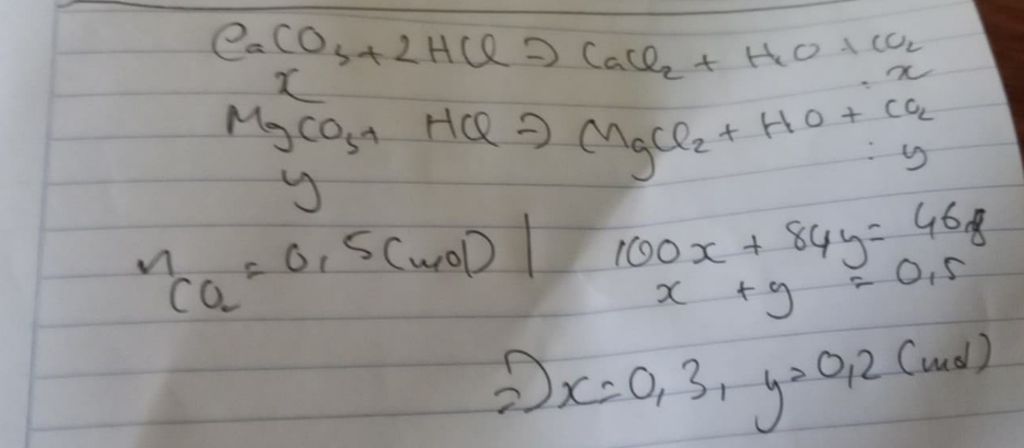 CaCO3 + 2HCl => CaCl2 + H2O + CO2
x x
MgCO3 + HCl => MgCl2 + HO + CO2
y y
nCO2 = 0,5 (mol) | 100x + 84y = 46,8
x + y = 0,5
=> x = 0,3, y = 0,2 (mol)